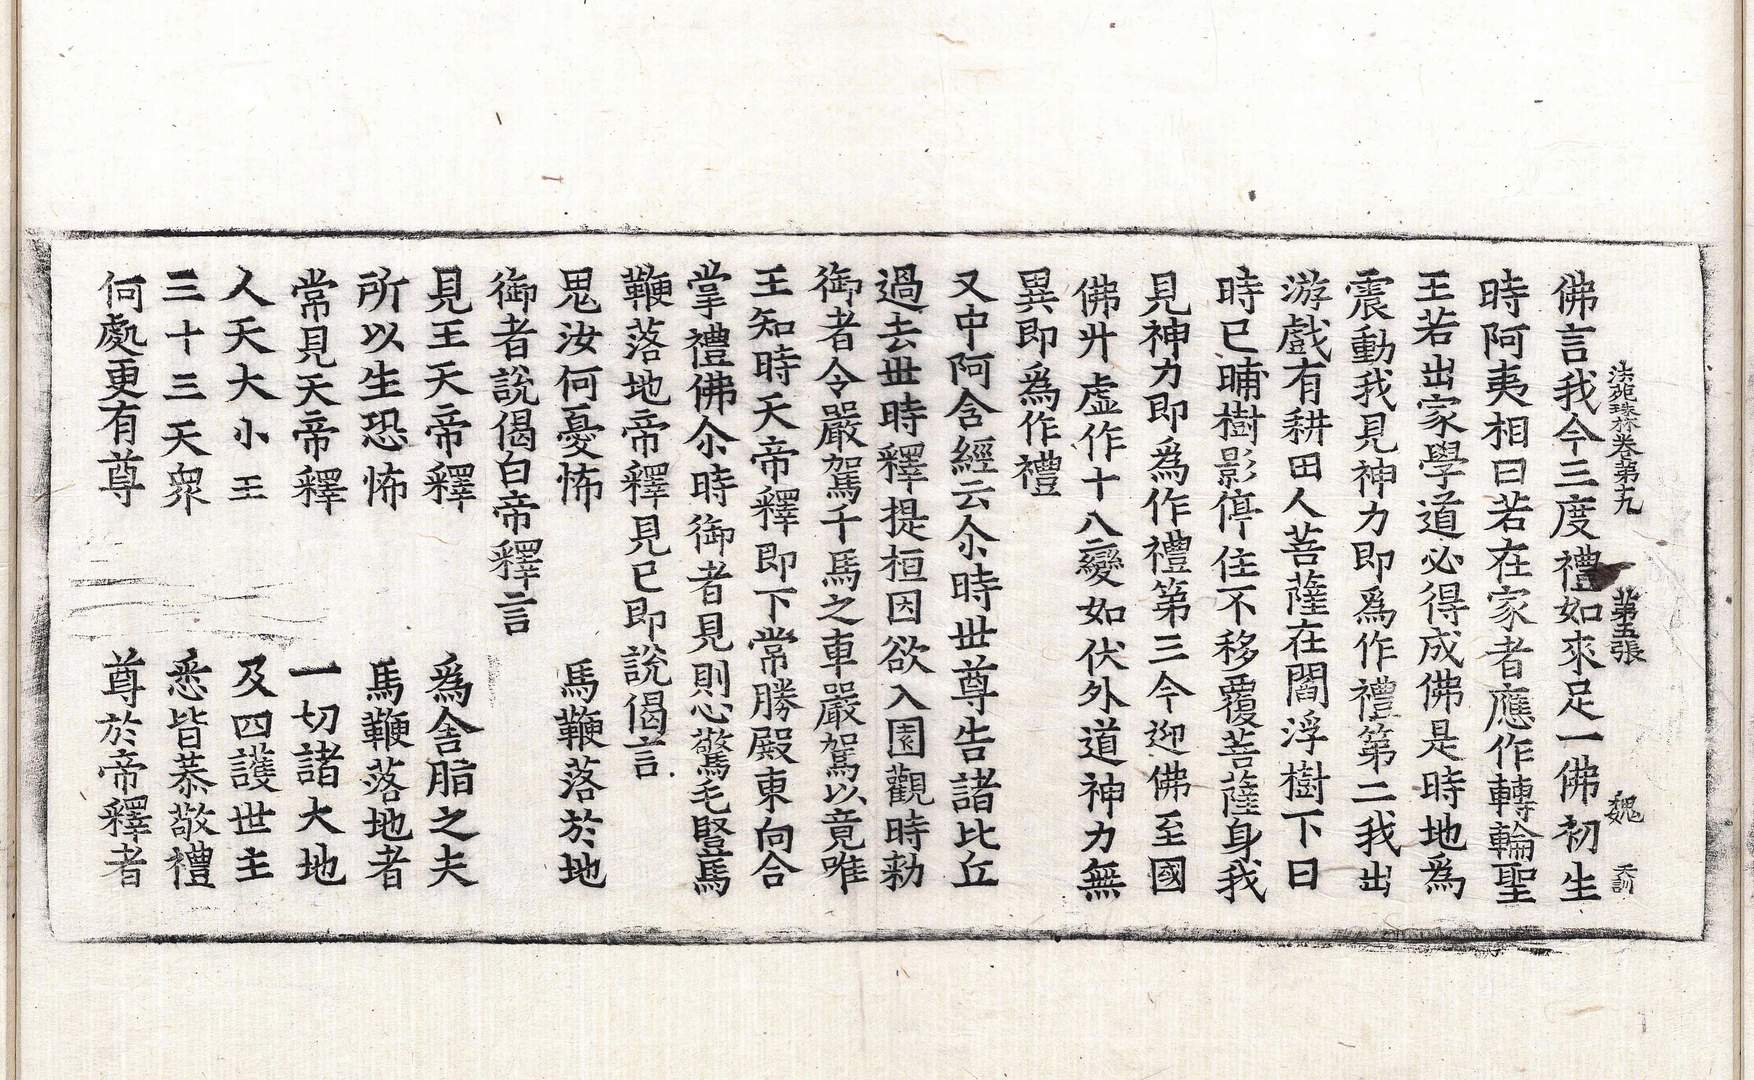 法苑珠林卷第十九　第五張　魏　天訓
佛言我今三度禮如來足一佛初生
時阿夷相曰若在家者應作轉輪聖
王若出家學道必得成佛是時地爲
震動我見神力即爲作禮第二我出
游戲有耕田人菩薩在閻浮樹下日
時已晡樹影停住不移覆菩薩身我
見神力即爲作禮第三今迎佛至國
佛升虛作十八變如伏外道神力無
異即爲作禮
又中阿含經云尒時世尊告諸比丘
過去世時釋提桓因欲入園觀時勑
御者令嚴駕千馬之車嚴駕以竟唯
王知時天帝釋即下常勝殿東向合
掌禮佛尒時御者見則心驚毛豎馬
鞭落地帝釋見已即說偈言
鬼汝何憂怖　馬鞭落於地
御者說偈白帝釋言
見王天帝釋　爲舍脂之夫
所以生恐怖　馬鞭落地者
常見天帝釋　一切諸大地
人天大小王　及四護世主
三十三天衆　悉皆恭敬禮
何處更有尊　尊於帝釋者